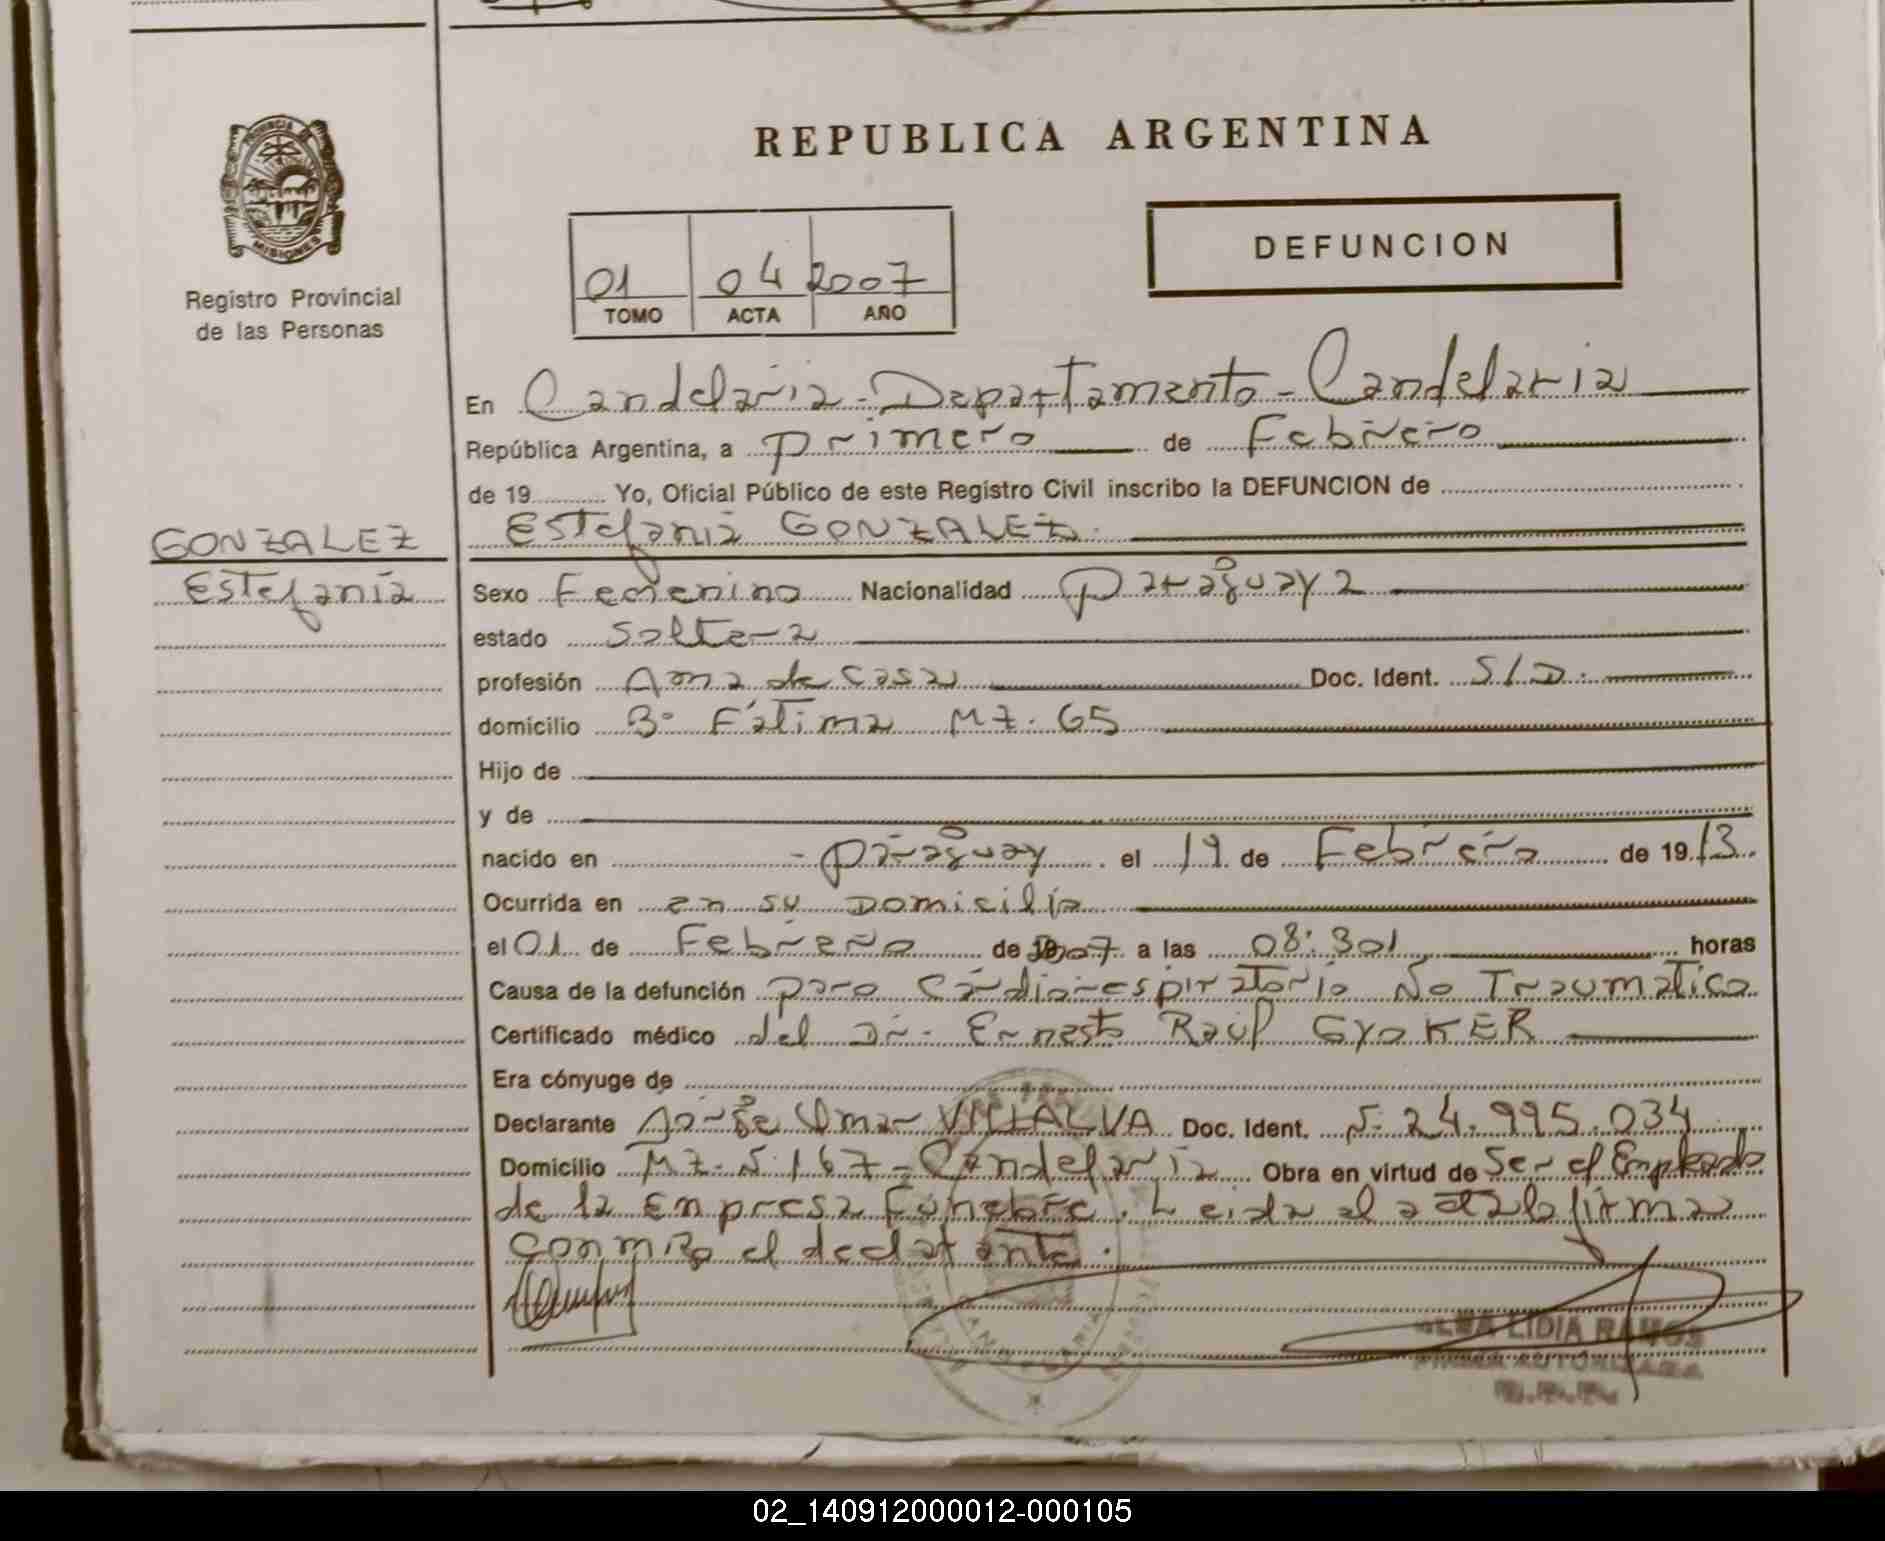 PROVINCIA DE
MISIONES
Registro Provincial
de las Personas
REPUBLICA ARGENTINA
DEFUNCION
01 04 2007
TOMO ACTA AÑO
En Candelaria - Departamento - Candelaria
República Argentina, a primero de Febrero
de 19 Yo, Oficial Público de este Registro Civil inscribo la DEFUNCION de
GONZALEZ Estefania GONZALEZ.
Estefania Sexo Femenino Nacionalidad Paraguaya
estado Soltera
profesión Ama de Casa Doc. Ident. S/D.
domicilio Bº Fátima MZ. 65
Hijo de
y de
nacido en - Paraguay el 19 de Febrero de 19 13.
Ocurrida en en su Domicilio
el 01 de Febrero de 2007 a las 08:30 horas
Causa de la defunción paro Cardiorespiratorio No Traumatico
Certificado médico del Dr. Ernesto Raúl GYOKER
Era cónyuge de
Declarante Jorge Omar VILLALVA Doc. Ident. N: 24.995.034
Domicilio MZ. N 167 - Candelaria Obra en virtud de Ser el Empleado
de la Empresa Funebre. Leida el acta la firma
conmigo el declarante.
ALBA LIDIA RAMOS
FIRMA AUTORIZADA
02_140912000012-000105